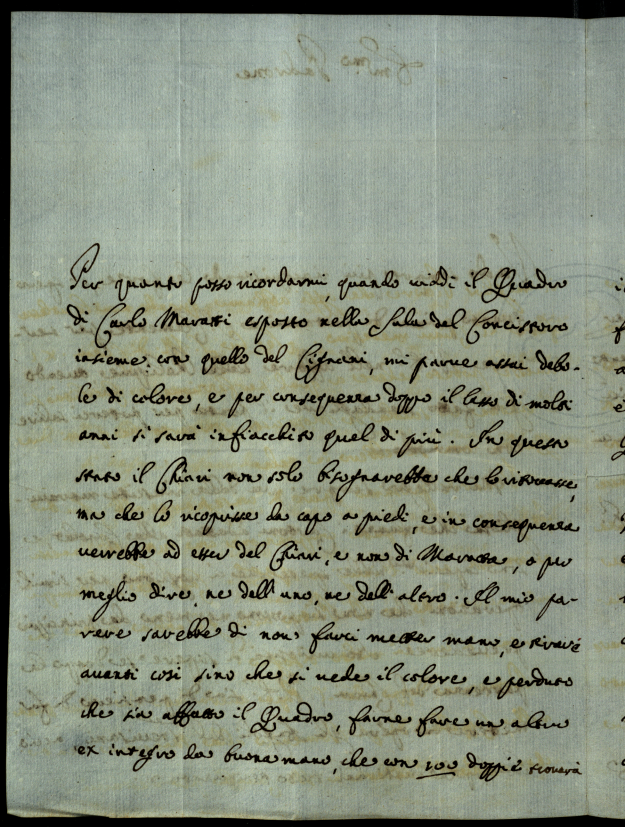 Per quanto posso ricordarmi, quando viddi il Quadro
di Carlo Maratti esposto nella Sala del Concistoro
insieme con quello del Cignani, mi parve assai debo-
le di colore, e per consequenza doppo il lasso di molti
anni si sarà infiacchito qual di più. In questo
stato il Chiari non solo bisognarebbe che lo ritoccasse,
ma che lo ricoprisse da capo a piedi, e in consequenza
verrebbe ad esser del Chiari, e non di Maratta, o per
meglio dire, ne dell'uno, ne dell'altro. Il mio pa-
rere sarebbe di non farci metter mano, e tirare
avanti così sino che si vede il colore, e perduto
che sia affatto il Quadro, farne fare un altro
ex integro da buona mano, che con 100 doppie trovarà